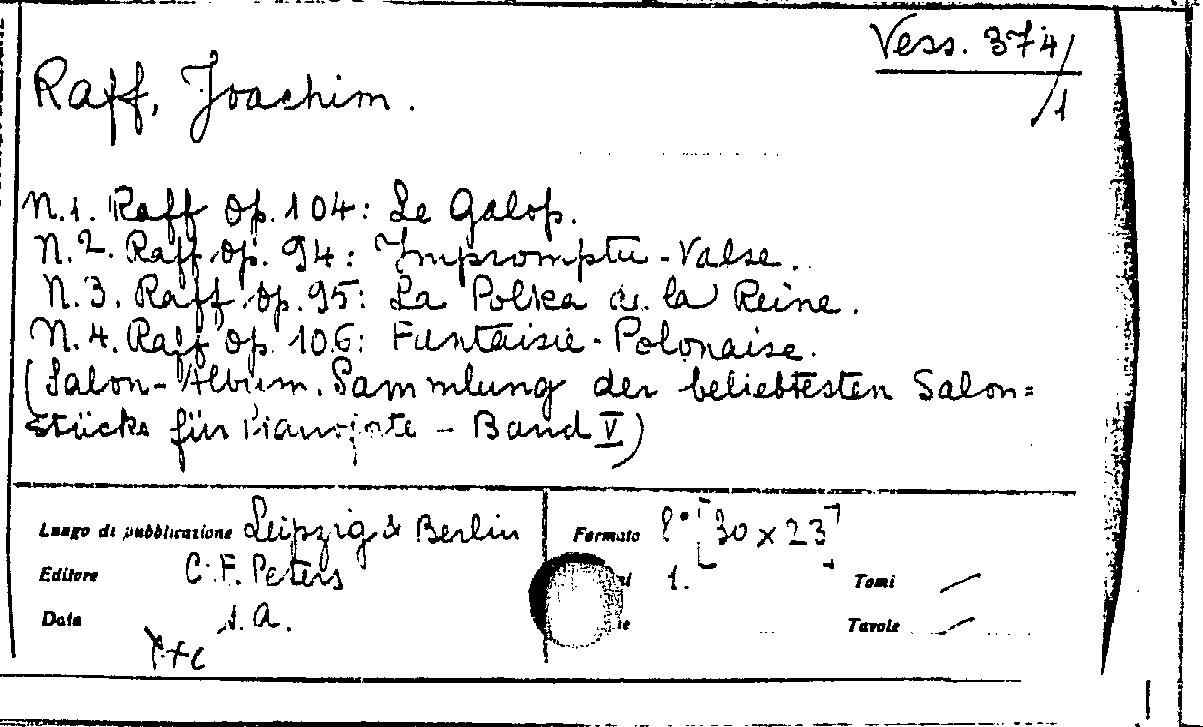 Vess. 374/
/1
Raff, Joachim.
N.1. Raff Op. 104: Le Galop.
N.2. Raff Op. 94: Impromptu-Valse.
N.3. Raff Op. 95: La Polka de la Reine.
N.4. Raff Op. 106: Fantaisie-Polonaise.
(Salon-Album. Sammlung der beliebtesten Salon=
stücke für Pianoforte - Band V)
Luogo di pubblicazione Leipzig & Berlin
Formato 8° [30 x 23]
Editore C. F. Peters
1.
Tomi /
Data s. a.
Tavole /